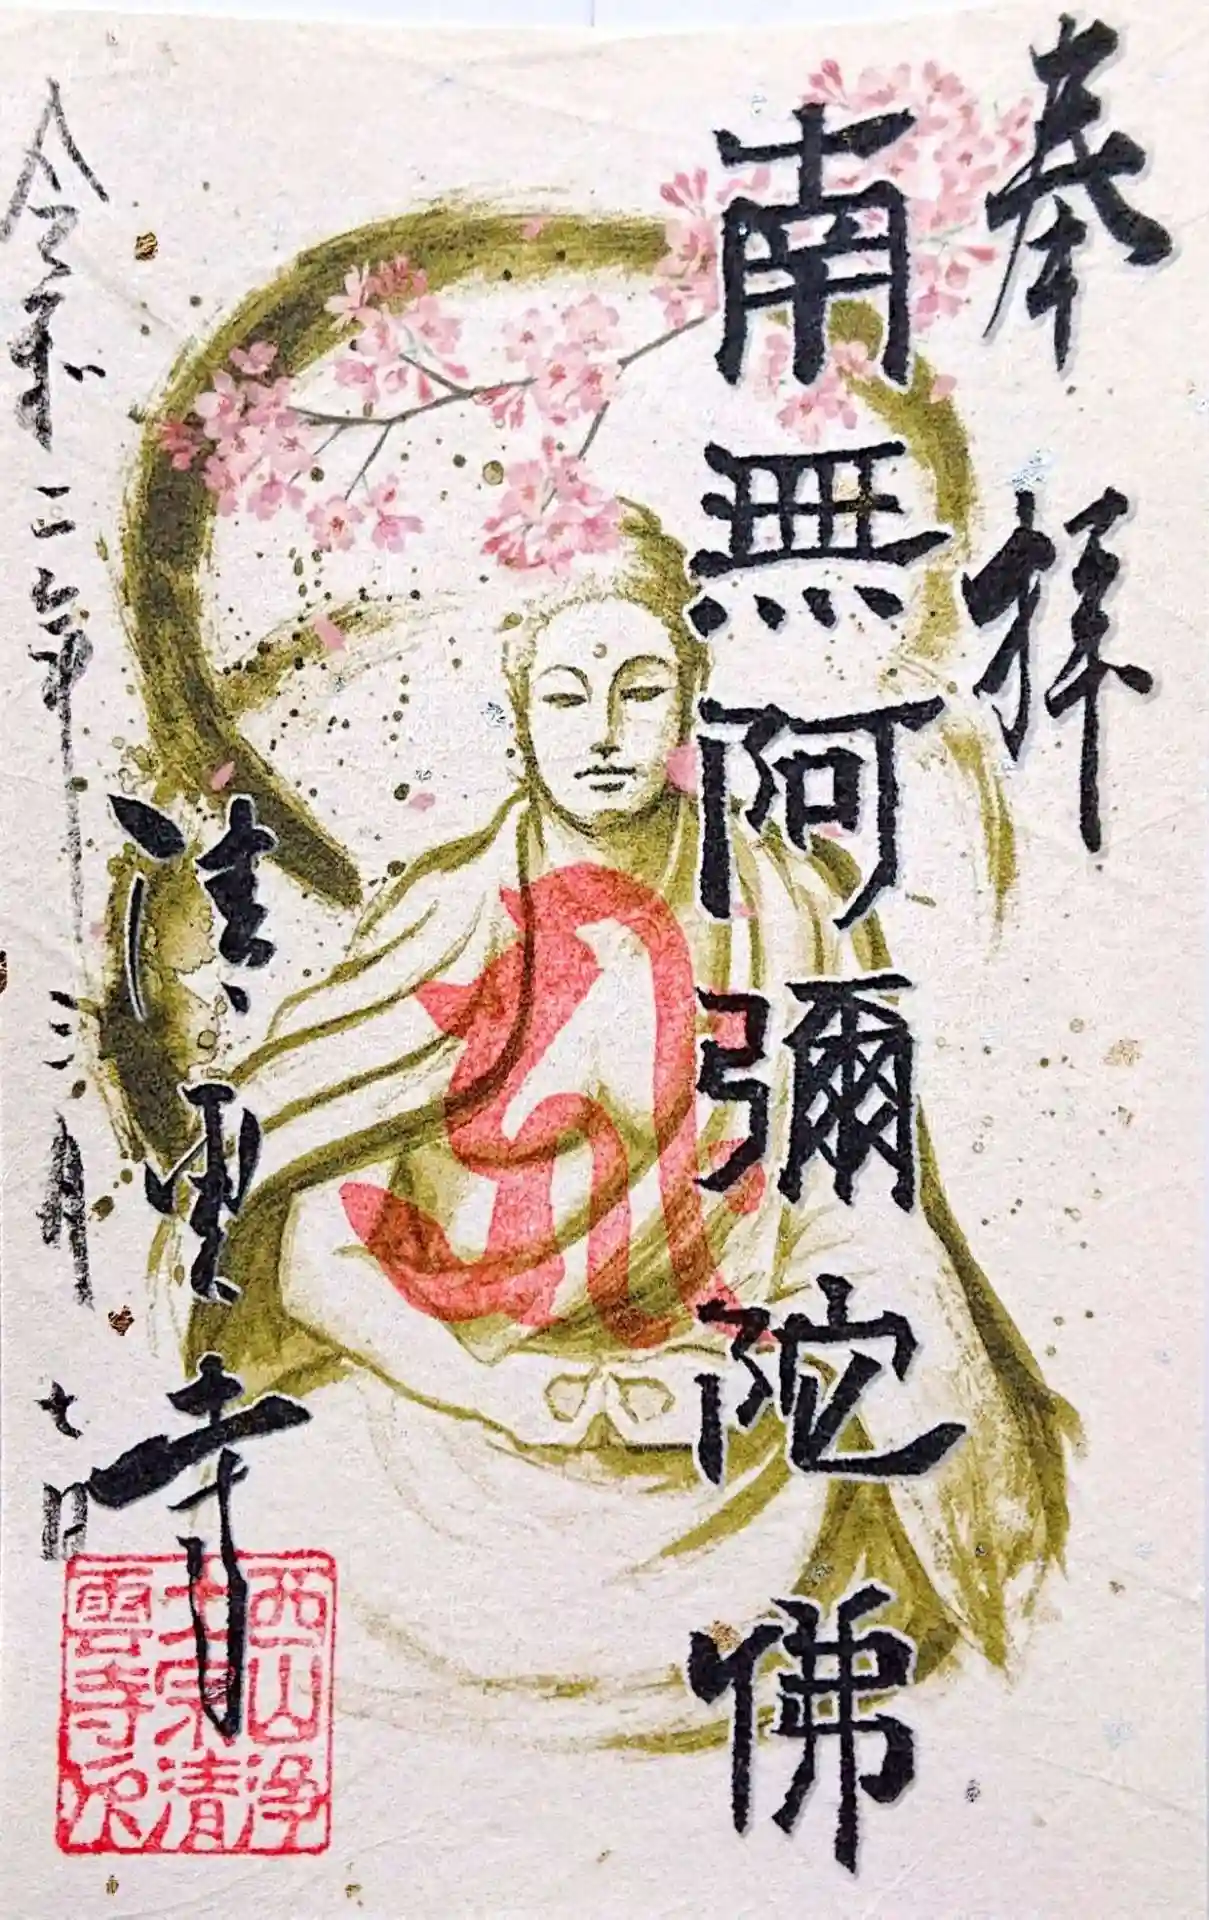 奉拝
南無阿彌陀佛
清雲寺
令和年三月七日
西山浄
土宗清
雲寺印